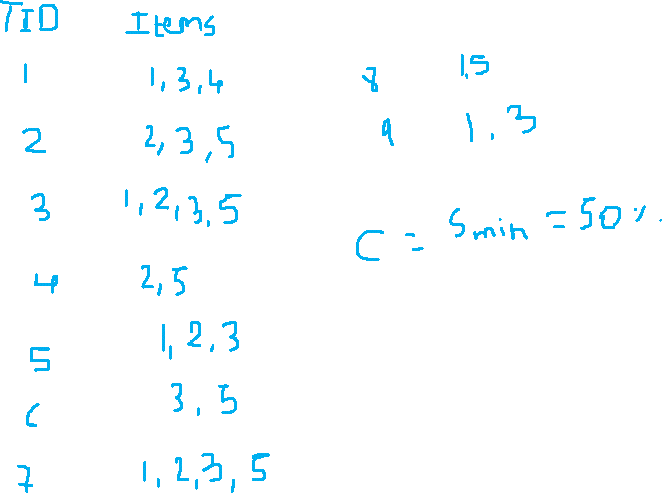 TID Items
1 1,3,4
2 2,3,5
3 1,2,3,5
4 2,5
5 1,2,3
6 3,5
7 1,2,3,5
8 1,5
9 1,3
C = Smin = 50%